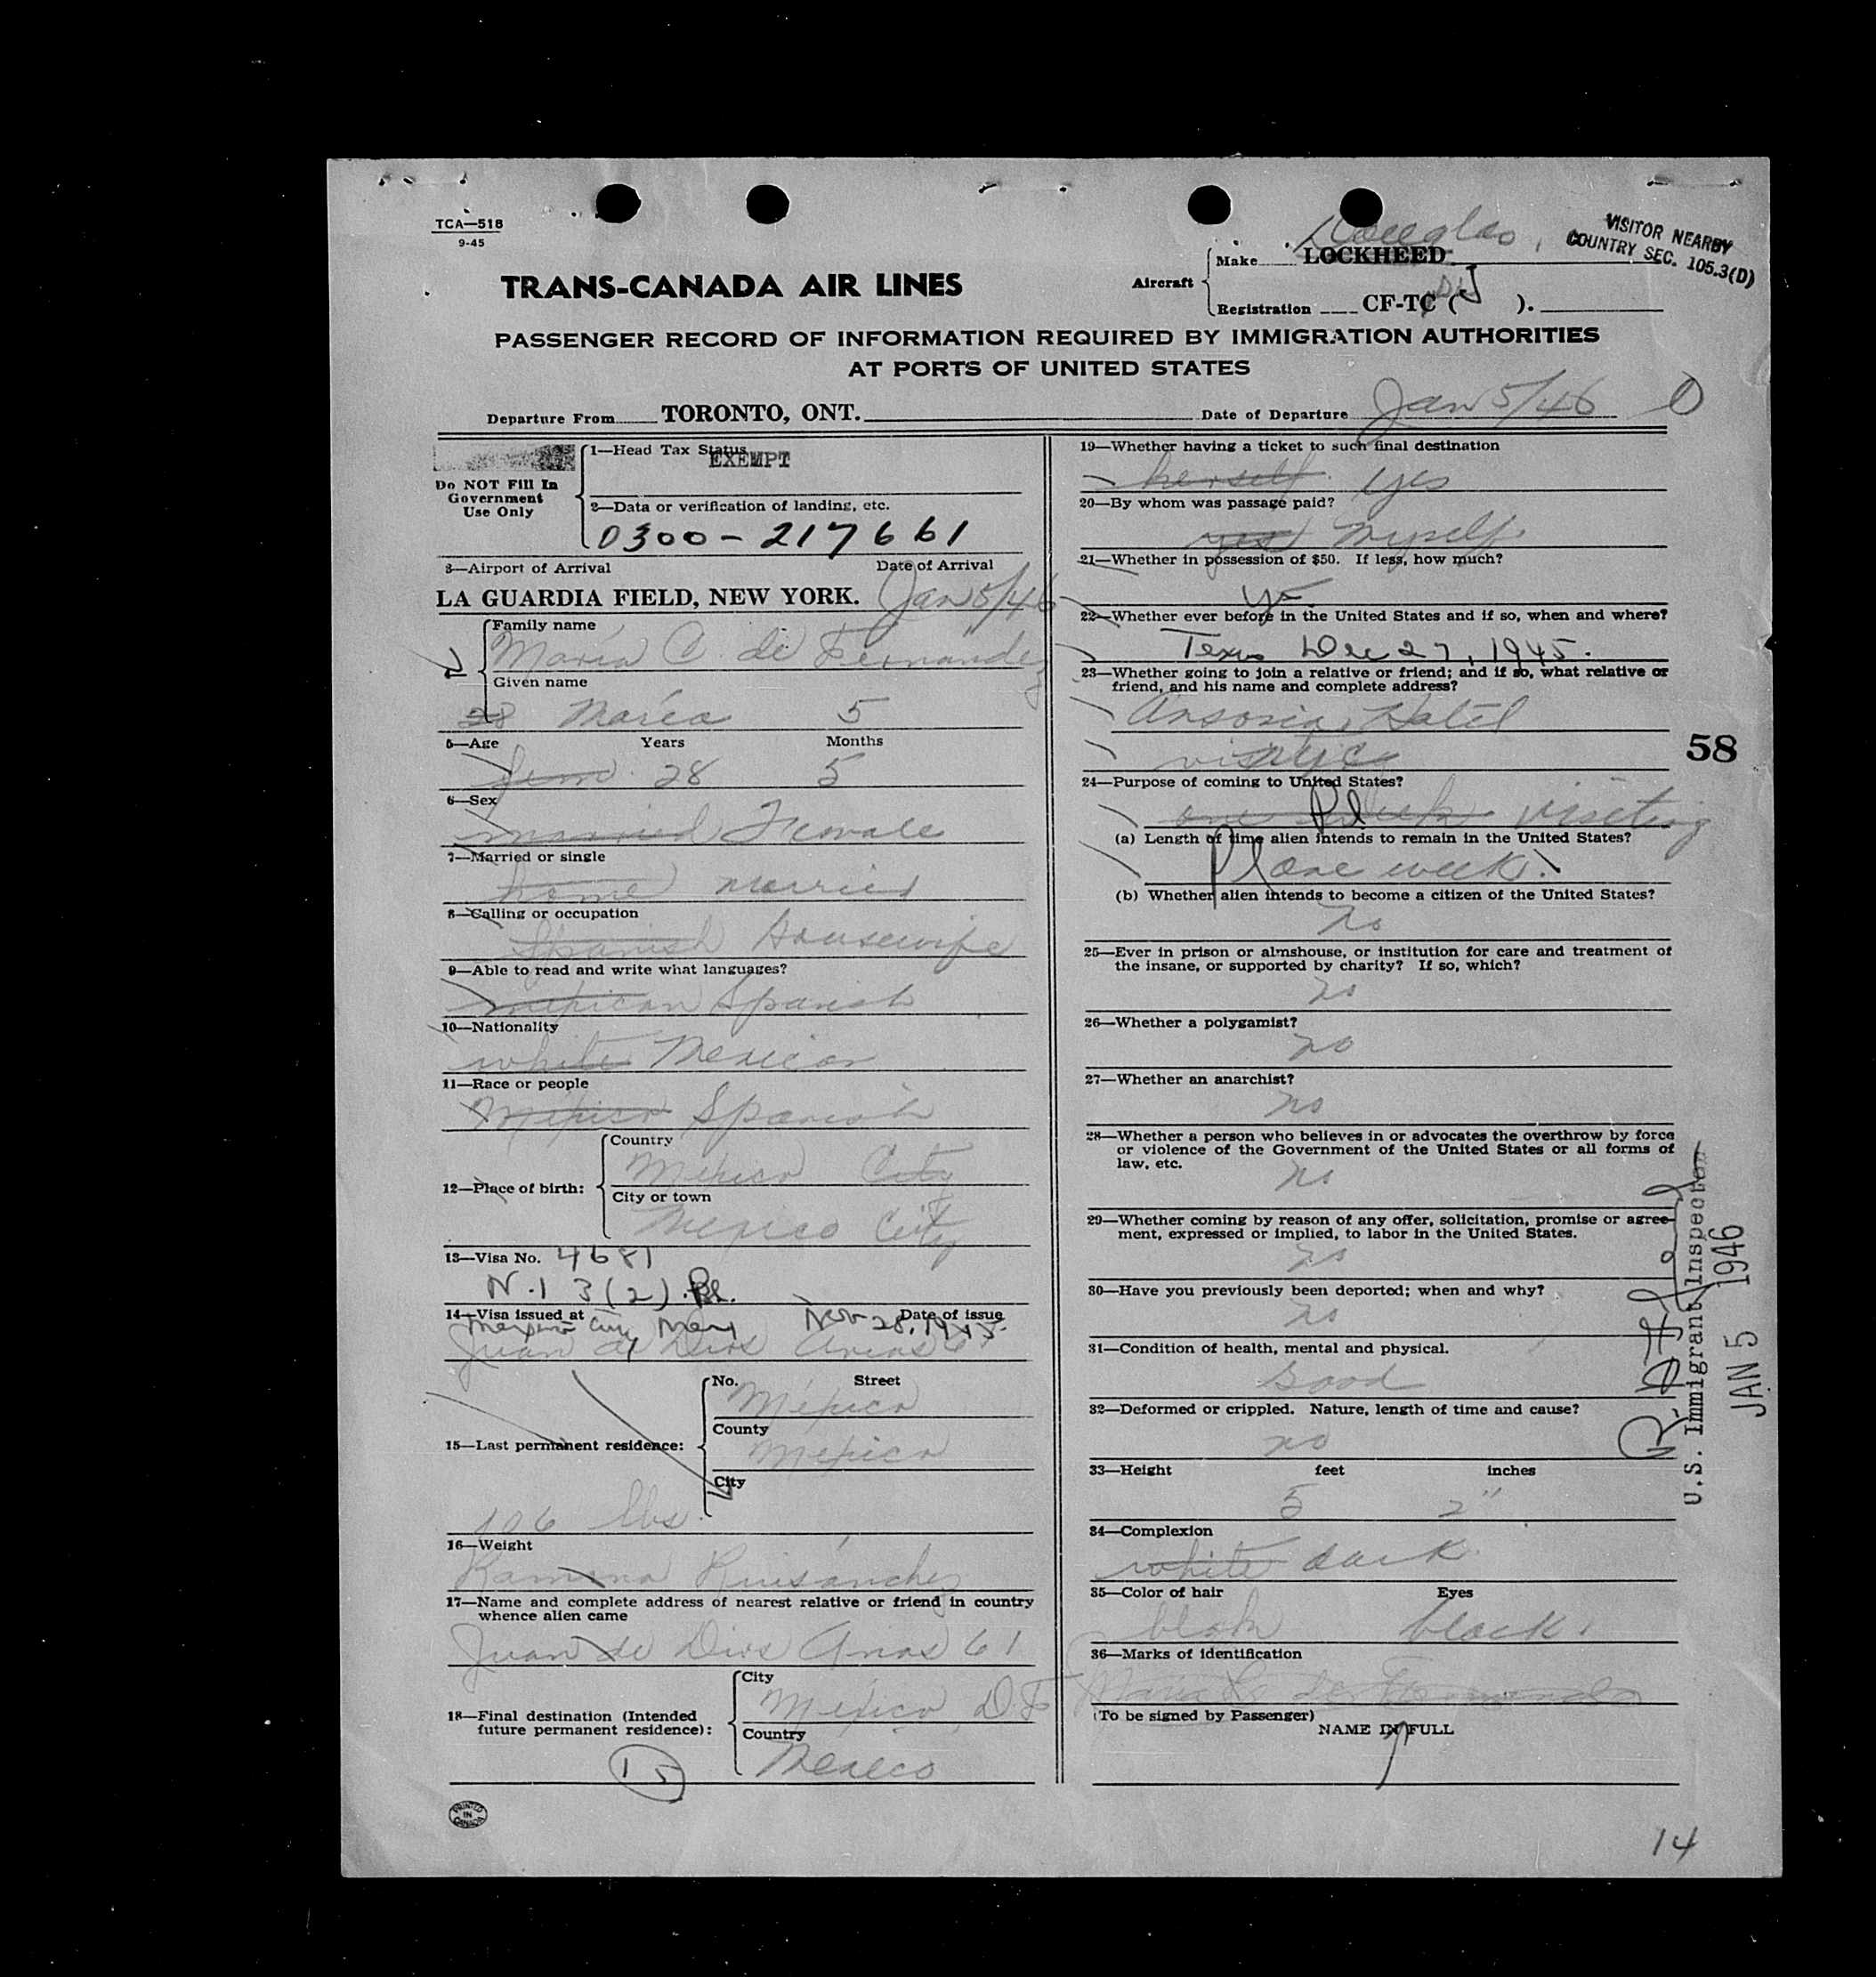 TCA—518
9-45
VISITOR NEARBY
COUNTRY SEC. 105.3(D)
Douglas,
Aircraft
Make LOCKHEED
TRANS-CANADA AIR LINES
Registration CF-TC ( J ).
PASSENGER RECORD OF INFORMATION REQUIRED BY IMMIGRATION AUTHORITIES
AT PORTS OF UNITED STATES
Departure From TORONTO, ONT. Date of Departure Jan 5/46
Do NOT Fill In
Government
Use Only
1—Head Tax Status
EXEMPT
2—Data or verification of landing, etc.
0300-217661
3—Airport of Arrival Date of Arrival
LA GUARDIA FIELD, NEW YORK. Jan 5/46
Family name
María C. de Fernández
Given name
28 María 5
5—Age Years Months
fem. 28 5
6—Sex
married Female
7—Married or single
home married
8—Calling or occupation
Spanish Housewife
9—Able to read and write what languages?
mexican Spanish
10—Nationality
white Mexican
11—Race or people
México Spanish
12—Place of birth:
Country
México City
City or town
Mexico City
13—Visa No. 4681
N.I 3(2).
14—Visa issued at Date of issue
Mexico City Mex Nov 28, 1945.
Juan de Dios Arias 61
15—Last permanent residence:
No. Street
México
County
México
City
106 lbs.
16—Weight
Ramona Ruisánchez
17—Name and complete address of nearest relative or friend in country
whence alien came
Juan de Dios Arias 61
18—Final destination (Intended
future permanent residence):
City
México, D.F
Country
Mexico
15
PRINTED
IN
CANADA
19—Whether having a ticket to such final destination
herself. yes
20—By whom was passage paid?
yes Myself.
21—Whether in possession of $50. If less, how much?
22—Whether ever before in the United States and if so, when and where?
Texas Dec 27, 1945.
23—Whether going to join a relative or friend; and if so, what relative or
friend, and his name and complete address?
Ansonia, Hotel
24—Purpose of coming to United States?
one week visiting
(a) Length of time alien intends to remain in the United States?
one week.
(b) Whether alien intends to become a citizen of the United States?
no
25—Ever in prison or almshouse, or institution for care and treatment of
the insane, or supported by charity? If so, which?
no
26—Whether a polygamist?
no
27—Whether an anarchist?
no
28—Whether a person who believes in or advocates the overthrow by force
or violence of the Government of the United States or all forms of
law, etc.
no
29—Whether coming by reason of any offer, solicitation, promise or agree-
ment, expressed or implied, to labor in the United States.
no
30—Have you previously been deported; when and why?
no
31—Condition of health, mental and physical.
Good
32—Deformed or crippled. Nature, length of time and cause?
no
33—Height feet inches
5 2"
34—Complexion
white dark.
35—Color of hair Eyes
black.
36—Marks of identification
María C. de Fernández
(To be signed by Passenger)
NAME IN FULL
58
U.S. Immigrant Inspector
JAN 5 1946
14